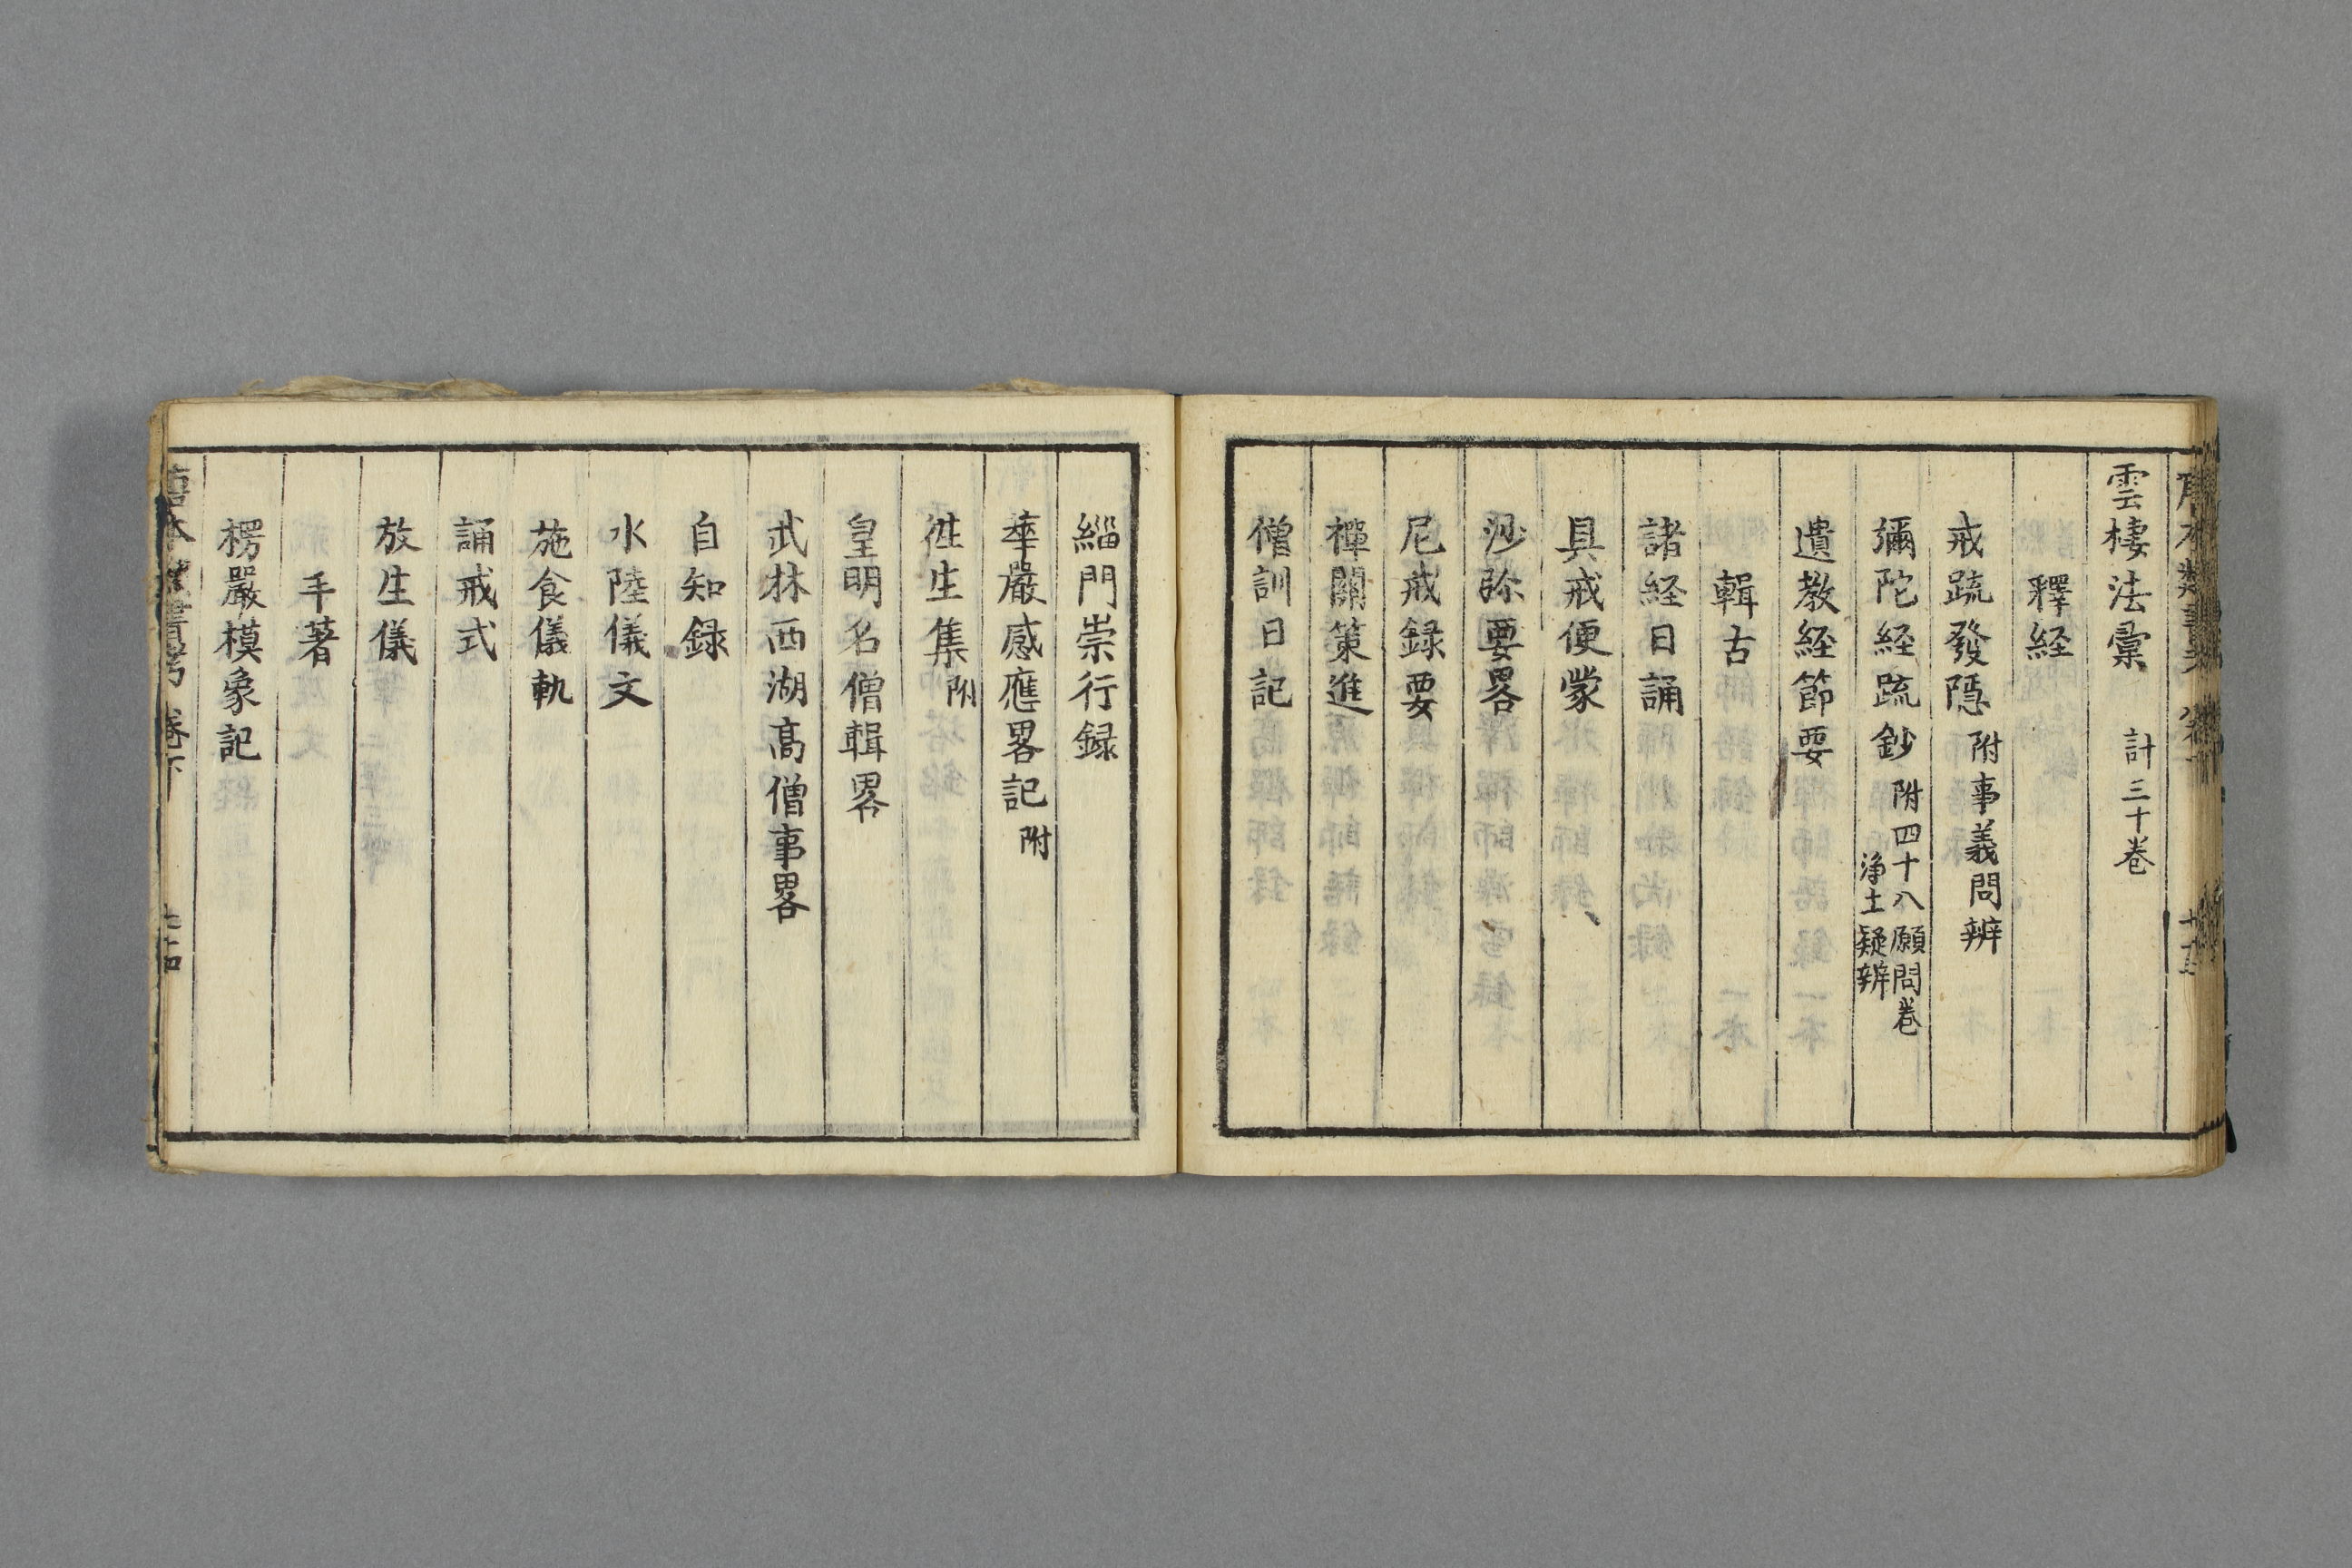 雲棲法彙 計三十巻
釋経
戒疏發隱 附事義問辨
彌陀経疏鈔 附四十八願問巻
浄土疑辨
遺教経節要
輯古
諸経日誦
具戒便蒙
沙弥要畧
尼戒録要
禪關策進
僧訓日記
緇門崇行録
華嚴感應畧記 附
徃生集 附
皇明名僧輯畧
武林西湖髙僧事畧
自知録
水陸儀文
施食儀軌
誦戒式
放生儀
手著
楞嚴模象記